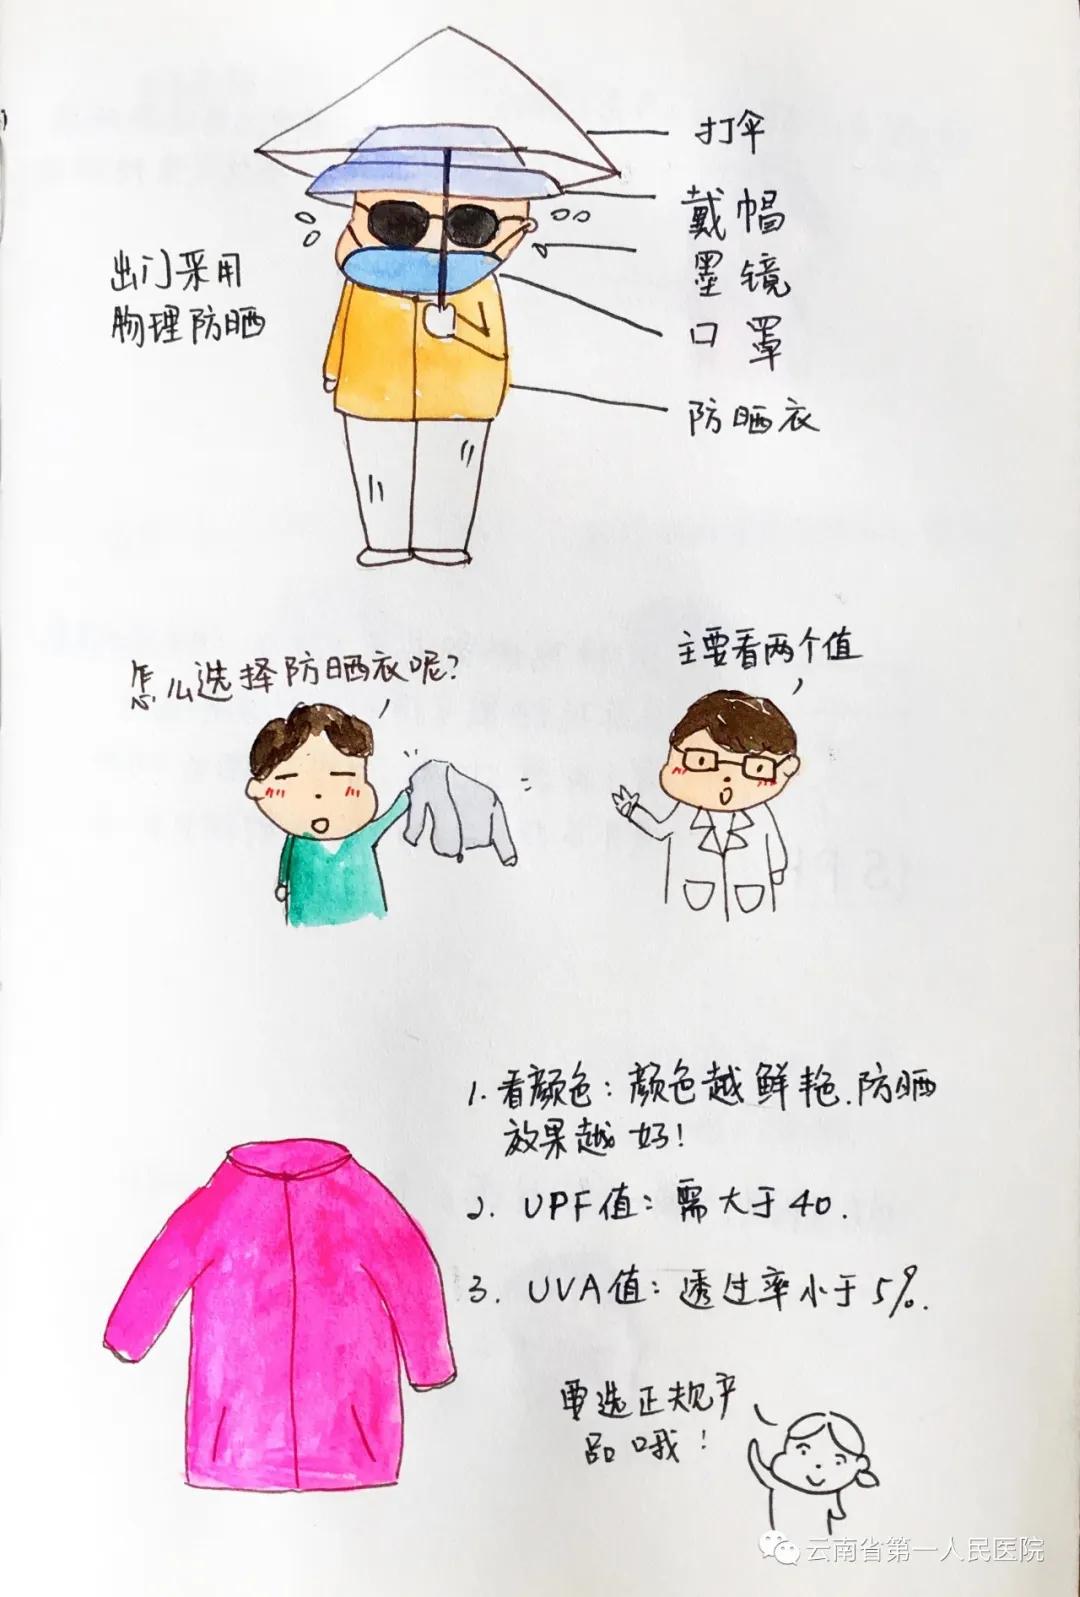 打伞
戴帽
墨镜
口罩
防晒衣
出门采用
物理防晒
怎么选择防晒衣呢?
主要看两个值
1. 看颜色: 颜色越鲜艳.防晒
效果越好!
2. UPF值: 需大于40.
3. UVA值: 透过率小于5%.
要选正规产
品哦!
云南省第一人民医院